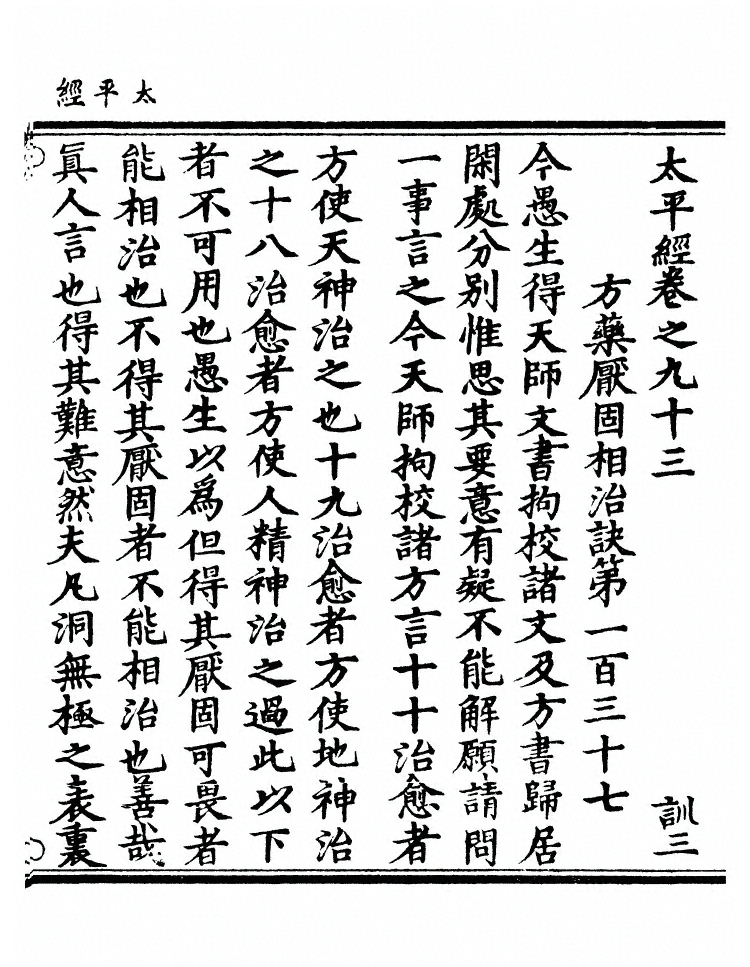 太平經
太平經卷之九十三
訓三
方藥厭固相治訣第一百三十七
今愚生得天師文書拘校諸文及方書歸居
閑處分別惟思其要意有疑不能解願請問
一事言之今天師拘校諸方言十十治愈者
方使天神治之也十九治愈者方使地神治
之十八治愈者方使人精神治之過此以下
者不可用也愚生以爲但得其厭固可畏者
能相治也不得其厭固者不能相治也善哉
眞人言也得其難意然夫凡洞無極之表裏